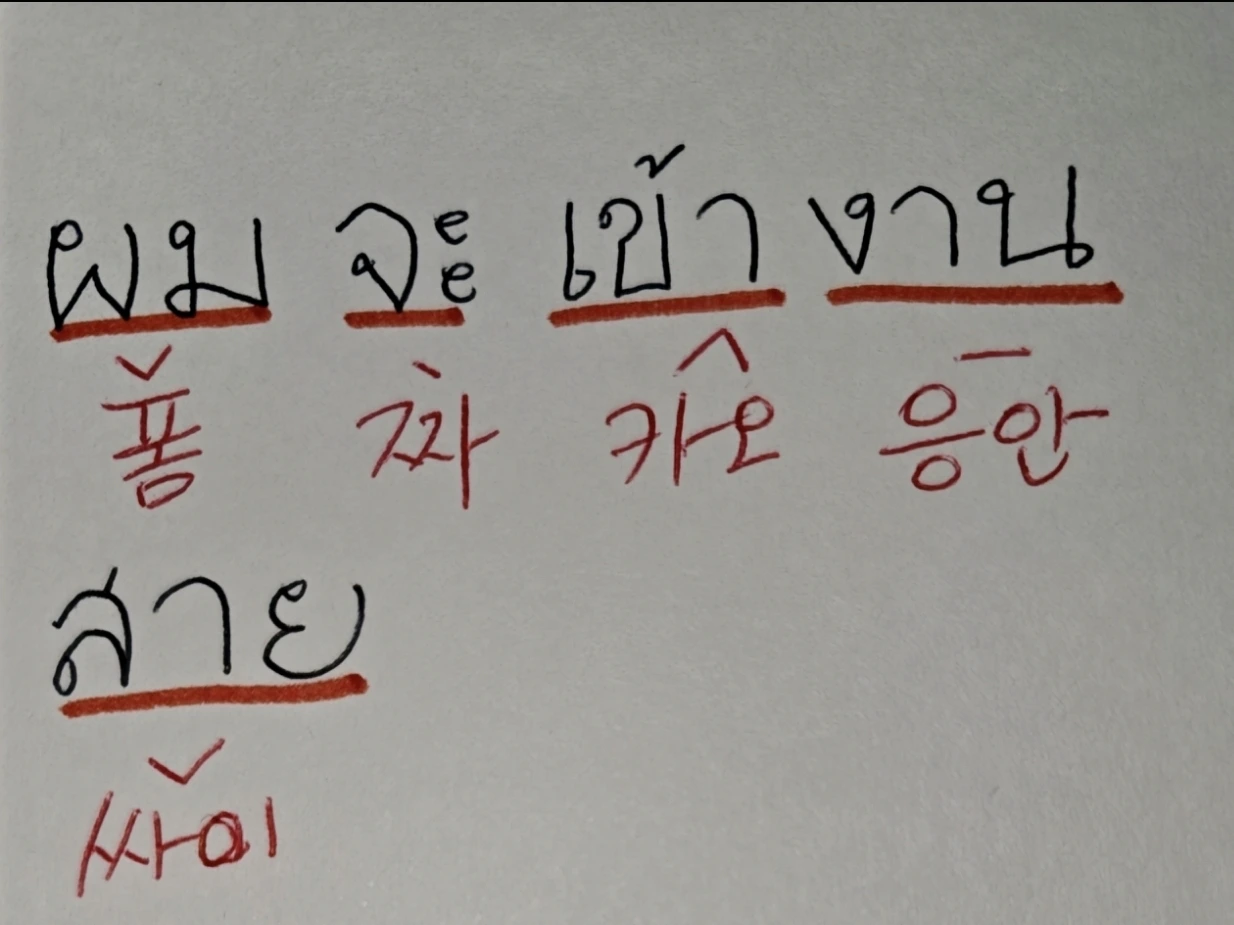 ผม จะ เข้า งาน
폼 짜 카오 응안
สาย
싸이